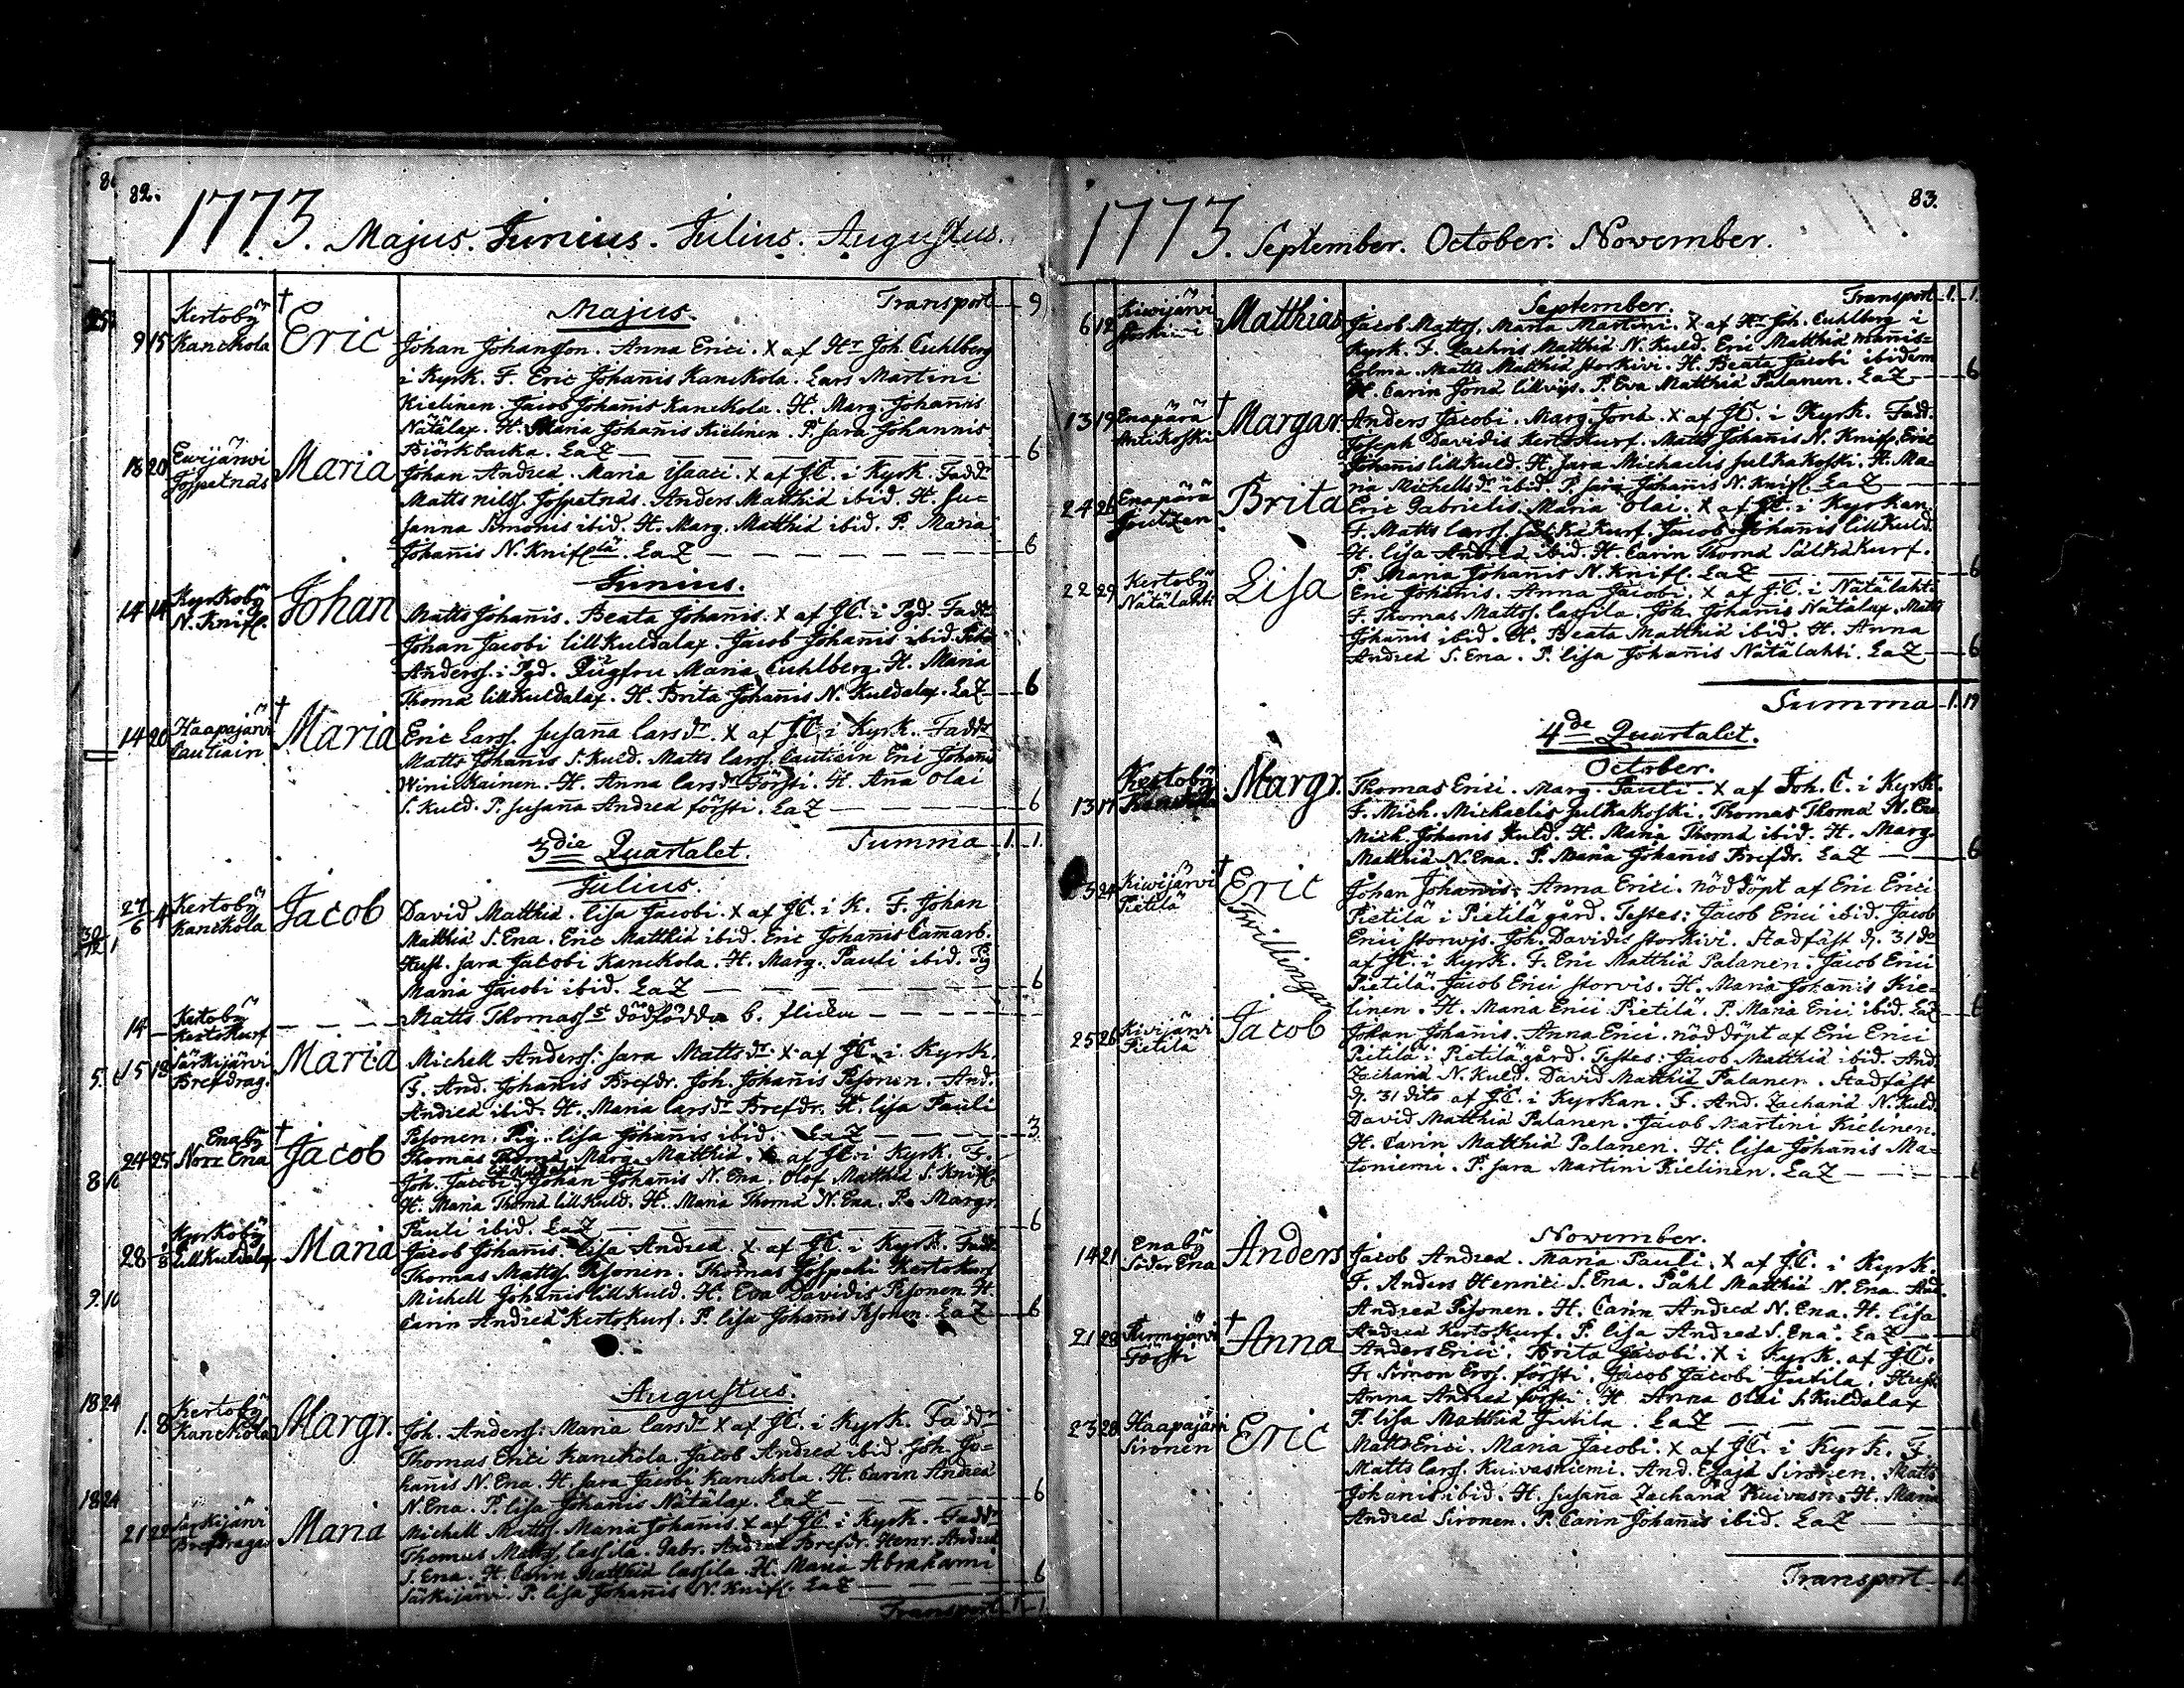 82.
1773. Majus. Junius. Julius. Augustus.
Majus. Transport 9
9 15 Kertobÿ Kanckola † Eric
Johan Johansson. Anna Erici. X af Hr Joh. Cuhlberg
i Kyrk. F. Eric Johan̄is Kanckola. Lars Martini
Kielinen. Jacob Johan̄is Kanckola. H. Marg. Johan̄is
Nätälax. H. Maria Johan̄is Kielinen. P. Sara Johannis
Biörkbacka. LaZ 6
18 20 Ewijärwi Maria
Johan Andreæ. Maria Isaaci. X af JC. i Kyrk. Faddr
Matts Nilss. Jospetnäs. Anders Matthiæ ibid. H. Su=
sanna Simonis ibid. H. Marg. Matthiæ ibid. P. Maria
Johan̄is N. Knif LaZ 6
Junius.
14 14 Kyrkobÿ N. Knifl. Johan
Matts Johan̄is. Beata Johan̄is. X af JC. i Pgd. Faddr
Johan Jacobi Lillkuldalax. Jacob Johanis ibid.
Anderss. i Pgd. Jugfru Maria Cuhlberg. H. Maria
Thomæ Lillkuldalax. H. Brita Johan̄is N. Kuldalax. LaZ 6
14 20 Haapajärvi Cautiain † Maria
Eric Larss. Susan̄a Larsdr. X af JC. i Kyrk. Faddr
Matts Johan̄is S. Kuld. Matts Larss. Cautiain Eric Johan̄is
Winickainen. H. Anna Larsdr Försti. H. An̄a Olai
S. Kuld. P. Susan̄a Andreæ Försti. LaZ 6
Summa 1. 1.
3die Quartalet.
Julius.
27/6 4 Kertobÿ Kanckola Jacob
David Matthiæ. Lisa Jacobi. X af JC. i K. F. Johan
Matthiæ S. Ena. Eric Matthiæ ibid. Eric Johan̄is Cam̄arb.
Hust. Sara Jacobi Kanckola. H. Marg. Pauli ibid. Pig
Maria Jacobi ibid. LaZ 6
14 Kertobÿ Kertokurf
Matts Thomass dödfödda b. flicka
15 18 Särkijärvi Brefdrag. Maria
Michell Anderss: Sara Mattsdr. X af JC. i Kyrk.
F. And. Johan̄is Brefdr. Joh. Johan̄is Pesonen. And.
Andreæ ibid. H. Maria Larsdr Brefdr. H. Lisa Pauli
Pesonen. Pig. Lisa Johan̄is ibid. LaZ 3
24 25 Enabÿ Norr Ena † Jacob
Thomas Thomæ, Marg. Matthiæ. X af JC. i Kyrk. F.
Joh. Jacobi Johan Johan̄is N. Ena. Olof Matthiæ S. Knifl.
H. Maria Thomæ Lillkuld. H. Maria Thomæ N. Ena. P. Margr.
Pauli ibid. LaZ 6
28 Kyrkobÿ Lillkuldalax Maria
Jacob Johan̄is. Lisa Andreæ. X af JC. i Kyrk. Faddr
Thomas Mattss. Pesonen. Thomas Kertokurf
Michell Johan̄is Lillkuld. H. Eva Davidis Pesonen. H.
Carin Andreæ Kertokurf. P. Lisa Johan̄is Pesonen. LaZ 6
Augustus.
1. 8 Kertobÿ Kanckola Margr.
Joh. Anderss: Maria Larsdr X af JC. i Kyrk. Faddr
Thomas Erici Kanckola Jacob Andreæ ibid. Joh. Jo=
han̄is N. Ena. H. Sara Jacobi Kanckola. H. Carin Andreæ
N. Ena. P. Lisa Johan̄is Nätälax. LaZ 6
21 22 Särkijärvi Brefdragar Maria
Michell Mattss. Maria Johan̄is. X af JC. i Kyrk. Faddr
Thomas Mattss. Lassila. Gabr. Andreæ Brefdr. Henr. Andreæ
S. Ena. H. Carin Matthiæ Lassila. H. Maria Abrahami
Särkijärvi. P. Lisa Johan̄is N. Knifl. LaZ 6
Transport 1. 1
83.
1773. September. October. November.
September. Transport 1. 1.
6 12 Kiwijärvi Storkiwi Matthias
Jacob Mattss. Maria Martini. X af Hr Joh. Cuhlberg i
Kyrk. F. Zachris Matthiæ N. Kuld. Eric Matthiæ Männis=
colma. Matts Matthiæ Storkivi. H. Beata Jacobi ibidem
H. Carin Jonæ Lillvijs. P. Eva Matthiæ Palanen. LaZ 6
13 19 Enapärä Antikoski † Margar.
Anders Jacobi. Marg. Jonæ. X af JC. i Kyrk. Fadd.
Joseph Davidis Kertokurf. Matts Johan̄is N. Knifl. Eric
Johan̄is Lillkuld. H. Sara Michaelis Julkakoski. H. Ma=
ria Michellsdr ibid. P. Sara Johan̄is N. Knifl. LaZ
24 26 Enapärä Brita
Eric Gabrielis. Maria Olai. X af JC. i Kyrkan
F. Matts Larss. Jacob Johan̄is Lillkuld.
H. Lisa Andreæ ibid. H. Carin Thomæ
P. Maria Johan̄is N. Knifl. LaZ 6
22 29 Kertobÿ Nätälahti Lisa
Eric Johan̄is. Anna Jacobi. X af J.C. i Nätälahti
F. Thomas Mattss. Lassila. Joh. Johan̄is Nätälax. Matts
Johan̄is ibid. H. Beata Matthiæ ibid. H. Anna
Andreæ S. Ena. P. Lisa Johan̄is Nätälahti. LaZ 6
Summa 1. 19
4de Quartalet.
October.
13 17 Kertobÿ Kanckola Margr.
Thomas Erici. Marg. Pauli. X af Joh. C. i Kyrk.
F. Mich. Michaelis Julkakoski. Thomas Thomæ N. Ena
Mich. Johanis Kuld. H. Maria Thomæ ibid. H. Marg.
Matthiæ N. Ena. P. Maria Johan̄is Brefdr. LaZ 6
24 Kiwijärvi Pietilä † Eric
Tvillingar
Johan Johan̄is. Anna Erici. nöddöpt af Eric Erici
Pietilä i Pietilä gård. Testes: Jacob Erici ibid. Jacob
Erici Storwjs. Joh. Davidis Storkivi. Stadfäst d. 31do
af JC. i Kyrk. F. Eric Matthiæ Palanen. Jacob Erici
Pietilä. Jacob Erici Storvis. H. Maria Johan̄is Kie=
linen. H. Maria Erici Pietilä. P. Maria Erici ibid. LaZ 6
25 26 Kivijärvi Pietilä Jacob
Johan Johan̄is. Anna Erici. nöddöpt af Eric Erici
Pietilä i Pietilä gård. Testes: Jacob Matthiæ ibid. And.
Zachariæ N. Kuld. David Matthiæ Palanen. Stadfäst
d. 31 dito af JC. i Kyrkan. F. And. Zachariæ N. Kuld.
David Matthiæ Palanen. Jacob Martini Kielinen.
H. Carin Matthiæ Palanen. H. Lisa Johan̄is Ma=
toniemi. P. Sara Martini Kielinen. LaZ
November.
14 21 Enabÿ Söder Ena Anders
Jacob Andreæ. Maria Pauli. X af J.C. i Kyrk.
F. Anders Henrici S. Ena. Påhl Matthiæ N. Ena. And.
Andreæ Pesonen. H. Carin Andreæ N. Ena. H. Lisa
Andreæ Kertokurf. P. Lisa Andreæ S. Ena. LaZ
21 28 Försti † Anna
Anders Erici. Brita Jacobi. X i Kyrk. af JC.
F. Simon Erss. Försti. Jacob Jacobi Jutila. Hust.
Anna Andreæ Försti. H. Anna Olai S. Kuldalax
P. Lisa Matthiæ Jutila. LaZ
23 28 Haapajärvi Sironen Eric
Matts Erici. Maria Jacobi. X af JC. i Kyrk. F.
Matts Larss. Kuivasniemi. And. Esajæ Sironen. Matts
Johanis ibid. H. Susan̄a Zachariæ Kuivasn. H. Maria
Andreæ Sironen. P. Carin Johan̄is ibid. LaZ
Transport 1.